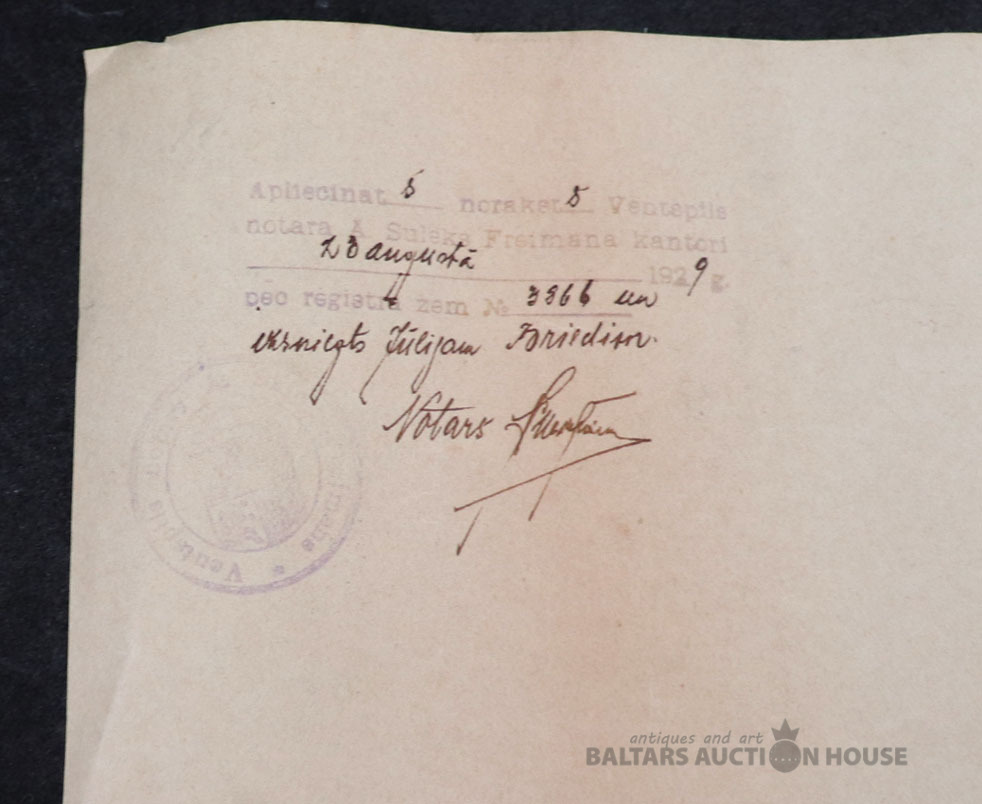 Apliecinat š norakst s Ventspils
notara A. Suleka Freimana kantori
23 augustā 1929 g.
pēc registra zem № 3866 un
izsniegts Jūlijam Briedim.
Notars
Ventspils
antiques and art
BALTARS AUCTION HOUSE